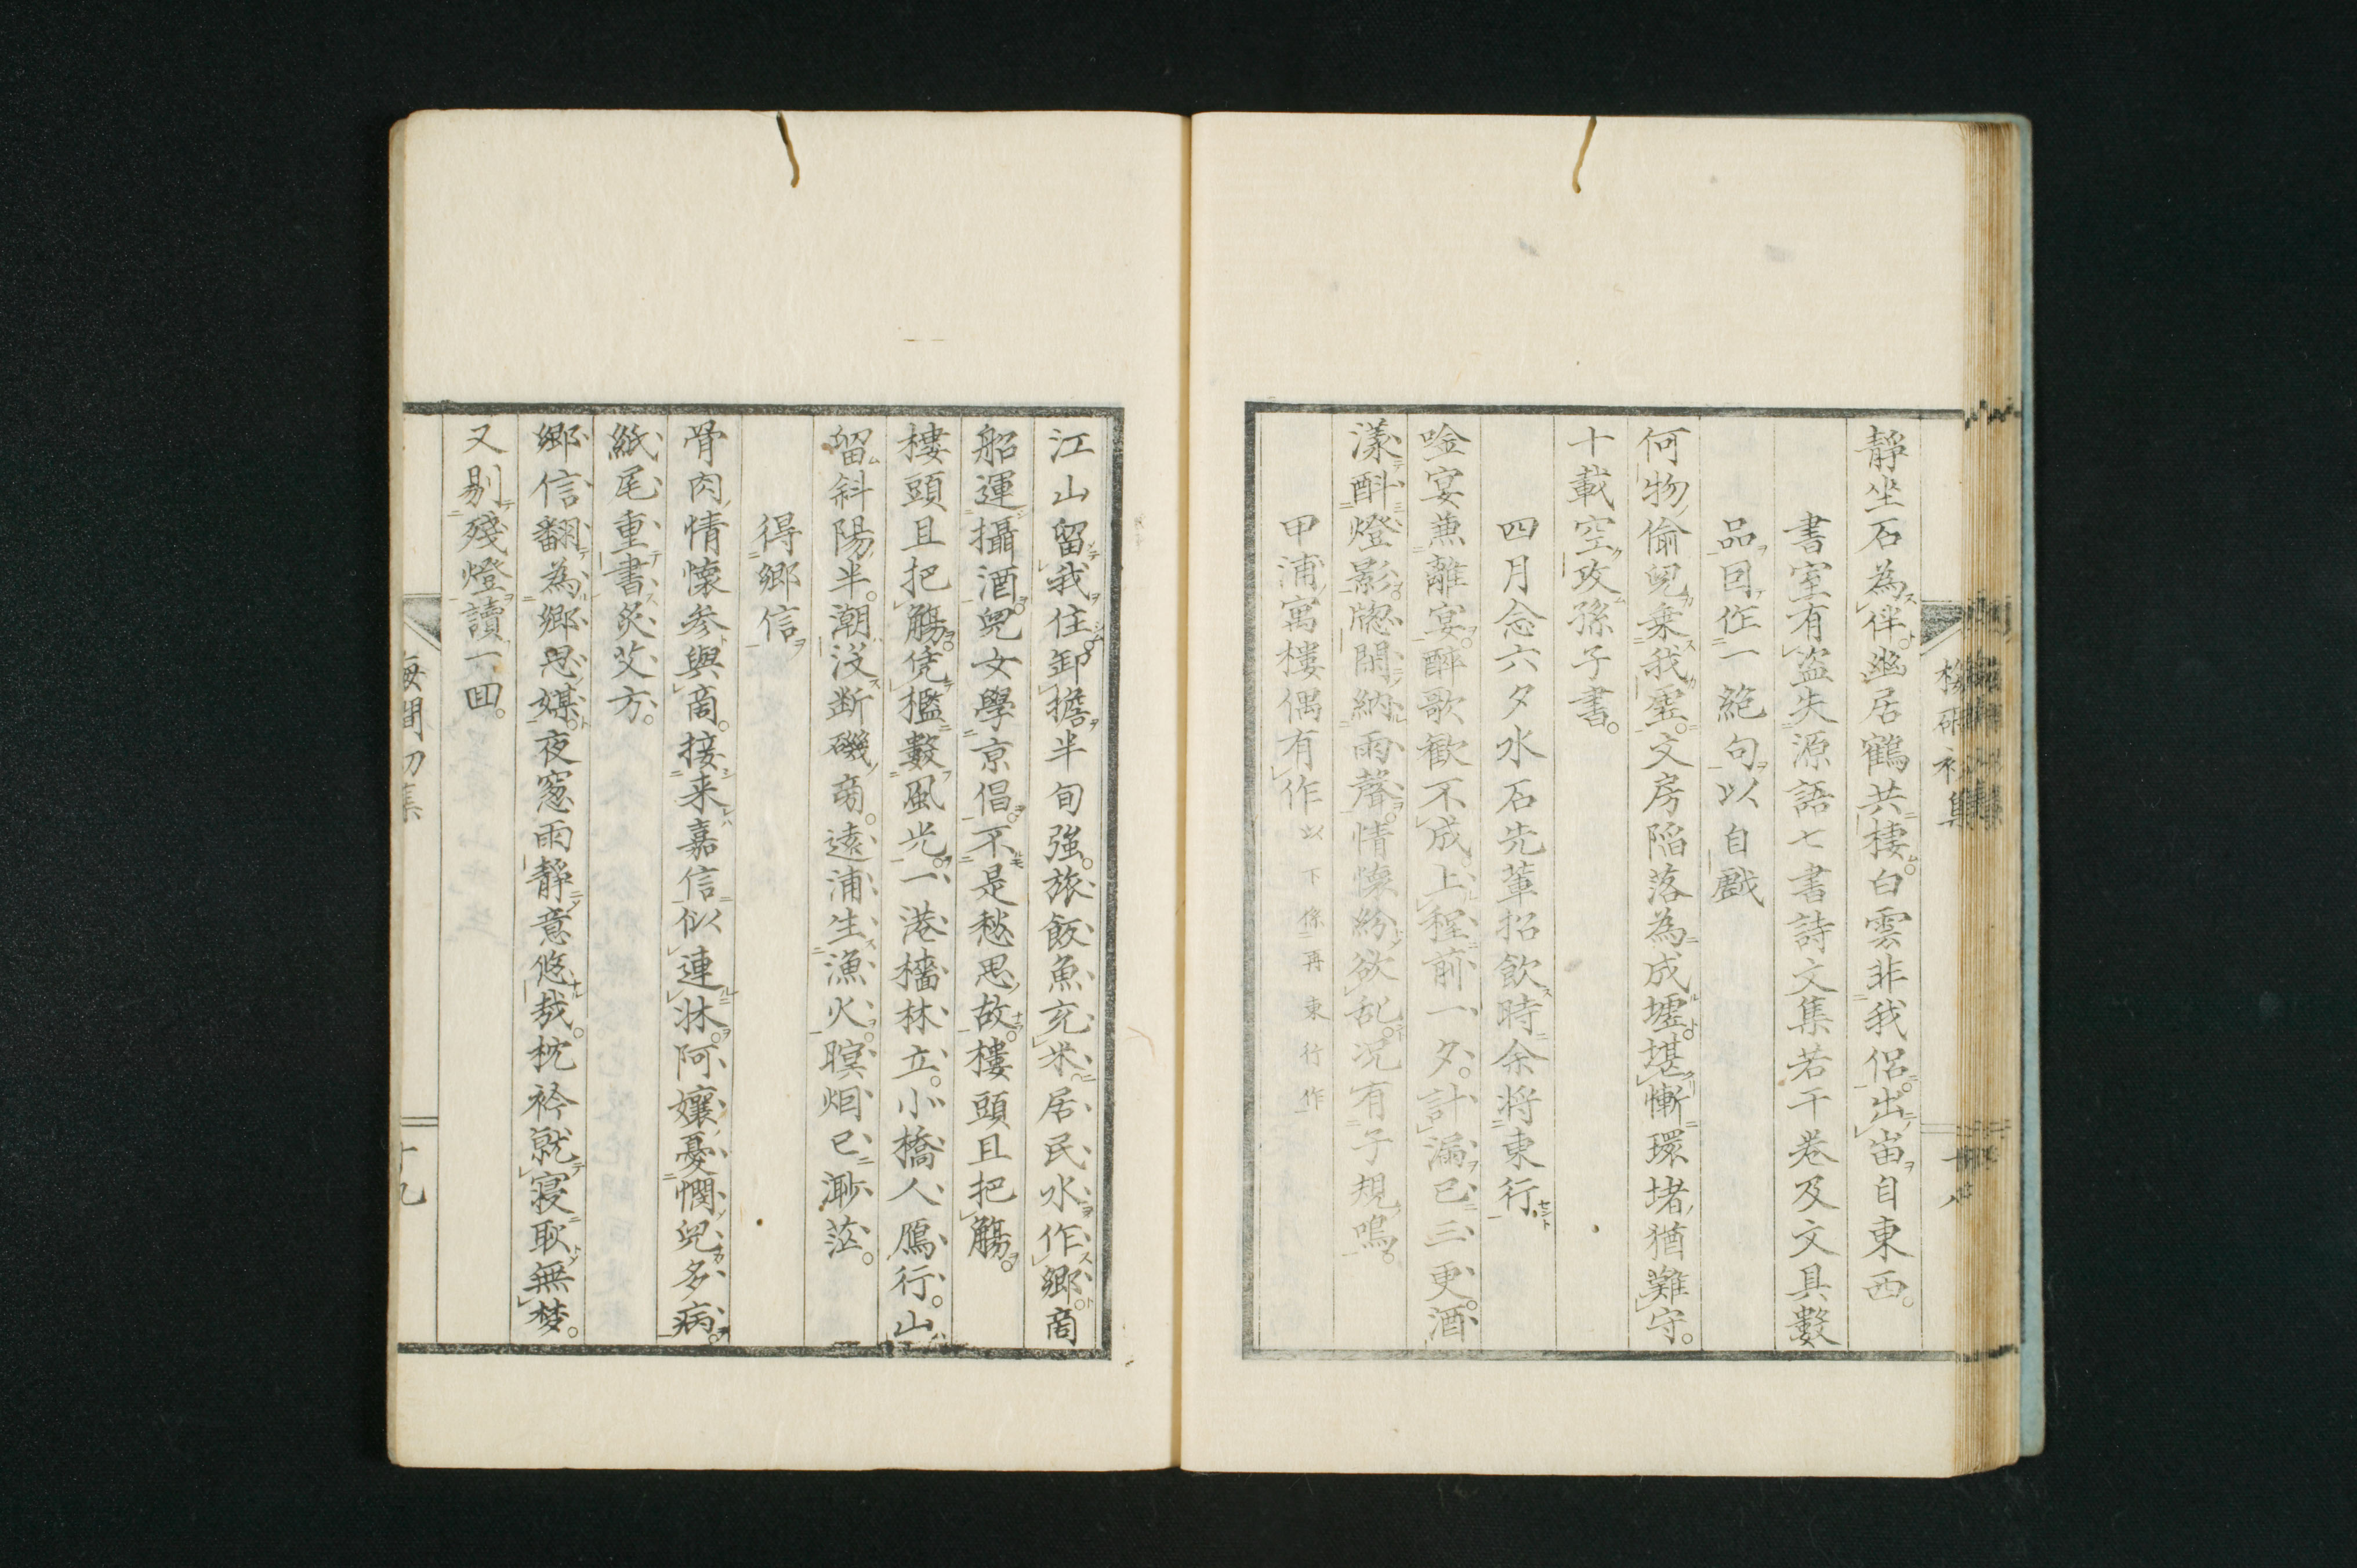 靜坐石為伴。幽居鶴共棲。白雲非我侶。出岫自東西。
書室有盗失源語七書詩文集若干巻及文具數
品因作一絶句以自戲
何物偷兒乗我虚。文房陥落為成墟。堪慚環堵猶難守。
十載空攻孫子書。
四月念六夕水石先輩招飲時余将東行
唫宴兼離宴。醉歌歓不成。上程前一夕。計漏已三更。酒
漾斟燈影。牕閒納雨聲。情懐紛欲乱。况有子規鳴。
甲浦寓樓偶有作以下係再東行作
江山留我住。卸擔半旬強。旅飯魚充米。居民水作郷。商
船運攝酒。兒女學京倡。不是愁思故。樓頭且把觴。
樓頭且把觴。凭檻數風光。一港檣林立。小橋人鴈行。山
留斜陽半。潮没断磯旁。遠浦生漁火。暝烟已渺茫。
得郷信
骨肉情懐参與商。接来嘉信似連牀。阿孃憂憫兒多病。
紙尾重書灸艾方。
郷信翻為郷思媒。夜窓雨静意悠哉。枕衾就寝耿無梦。
又剔殘燈讀一囬。
十九